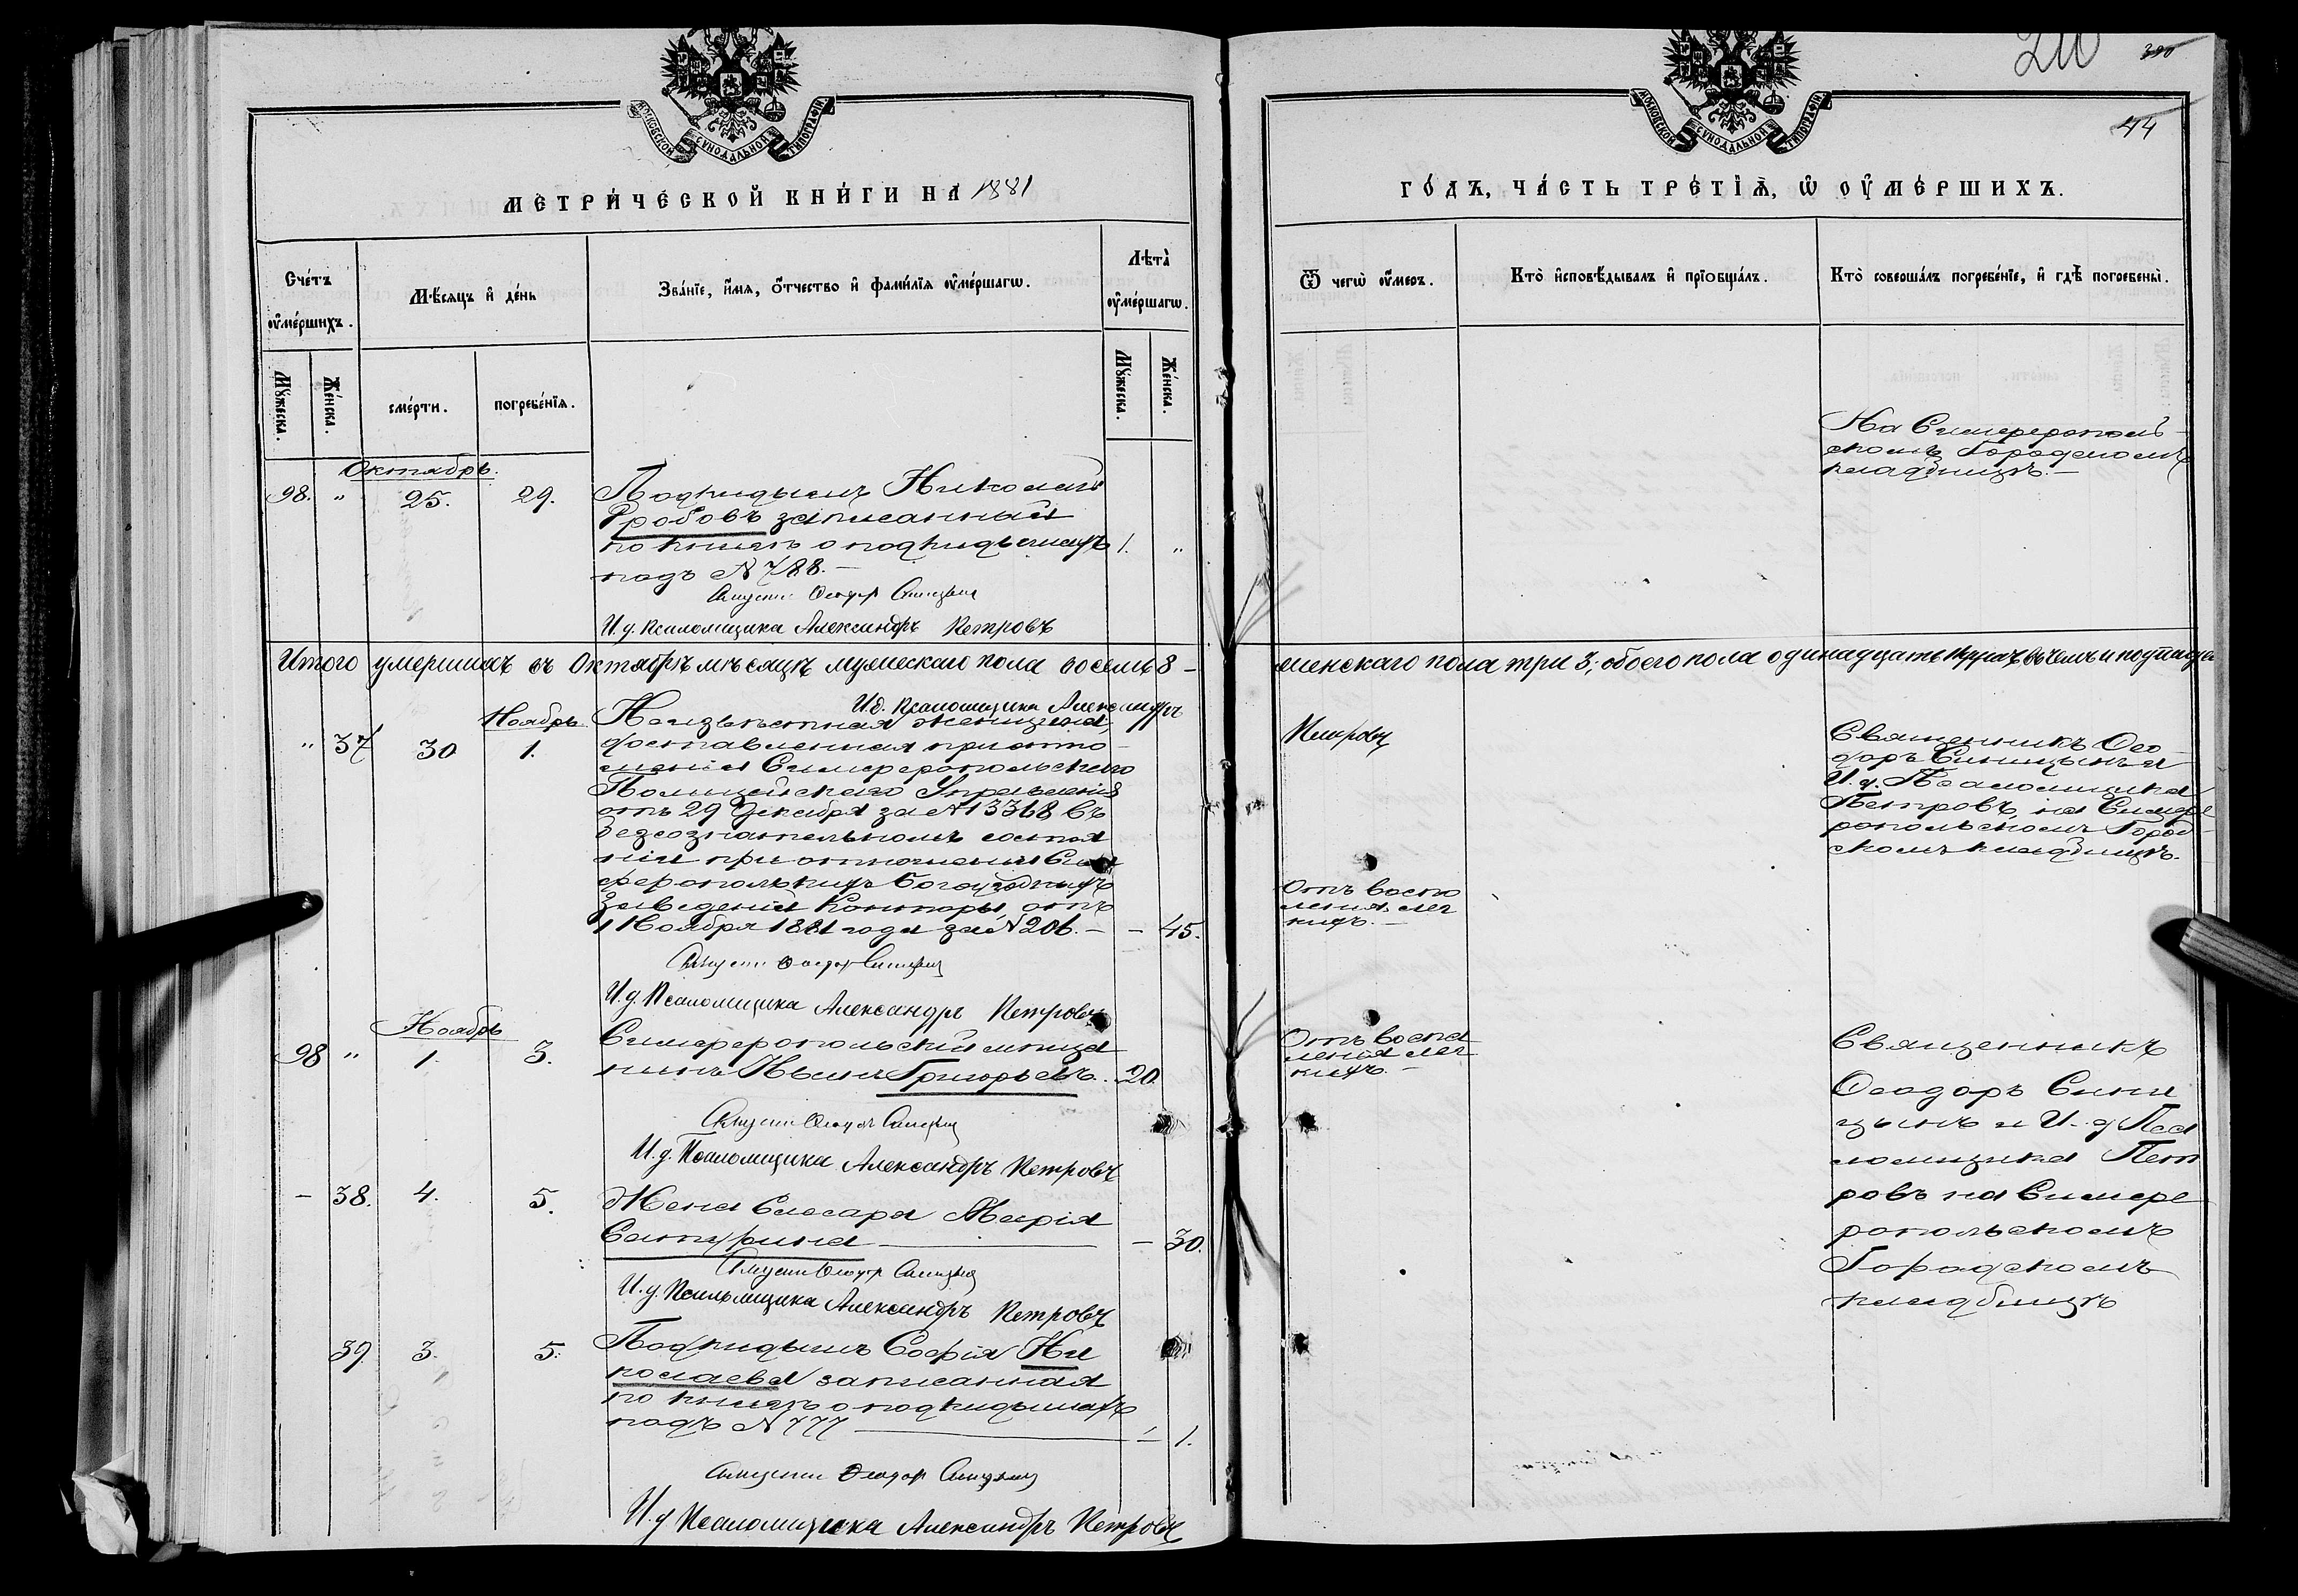 МОСКОВСКОЙ СѴНОДАЛЬНОЙ ТИПОГРАФІИ
МЕТРИ́ЧЕСКОЙ КНИ́ГИ НА 1881
Сче́тъ ᲂу҆ме́ршихъ.
Мѣ́сяцъ и҆ де́нь
Зва́нїе, и҆́мя, ѻ҆́тчество и҆ фами́лїя ᲂу҆ме́ршагѡ.
Лѣта̀ ᲂу҆ме́ршагѡ.
Мꙋ́жеска.
Же́нска.
сме́рти.
погребе́нїя.
Мꙋ́жеска.
Же́нска.
Октябрь.
98. " 25. 29. Подкидышъ Николай
Гробовъ записанный
по книгѣ о подкидышахъ 1. "
подъ № 788. —
Священ. Ѳеодор Синицын
И. д. Псаломщика Александръ Петровъ
Итого умершихъ въ Октябрѣ мѣсяцѣ мужескаго пола восемь 8 —
И.д. Псаломщика Александръ
Ноябрь
" 37 30 1. Неизвѣстная женщина,
доставленная при отно-
шеніи Симферопольскаго
Полицейскаго Управленія
отъ 29 Декабря за № 13368 въ
безсознательномъ состоя
ніи при отношеніи Сим
феропольскихъ Богоугодныхъ
Заведеній Конторы, отъ
1 Ноября 1881 года за № 206. — — 45.
Священ. Ѳеодор Синицын
И. д. Псаломщика Александръ Петровъ
Ноябрь
98 " 1. 3. Симферопольскій мѣща
нинъ Иванъ Григорьевъ. 20.
Священ. Ѳеодоръ Синицын
И. д. Псаломщика Александръ Петровъ
— 38. 4. 5. Жена Слесаря Марія
— 30.
Священ. Ѳеодор Синицын
И. д. Псаломщика Александръ Петровъ
39. 3. 5. Подкидышъ Софія Ни
колаева записанная
по книгѣ о подкидышахъ
подъ № 777 — 1.
Священ. Ѳеодор Синицын
И. д Псаломщика Александръ Петровъ
210
44
МОСКОВСКОЙ СѴНОДАЛЬНОЙ ТИПОГРАФІИ
ГО́ДЪ, ЧА́СТЬ ТРЕ́ТЇѦ, Ѡ҆ ОУ҆МЕ́РШИХЪ.
Ѿ чегѡ̀ ᲂу҆́меръ.
Кто̀ и҆сповѣ́дывалъ и҆ прїѡбща́лъ.
Кто̀ соверша́лъ погребе́нїе, и҆ гдѣ̀ погребены̀.
На Симферополь-
скомъ Городскомъ
кладбищѣ. —
женскаго пола три 3, обоего пола одинадцать
Петровъ
Священникъ Ѳео
доръ Синицынъ и
И. д. Псаломщика
Петровъ, на Симфе
ропольскомъ Город-
скомъ кладбищѣ.
Отъ воспа
ленія лег
кихъ. —
Отъ воспа
ленія лег
кихъ. —
Священникъ
Ѳеодоръ Сини
цынъ и И. д Пса
ломщика Пет
ровъ на Симфе
ропольскомъ
Городскомъ
кладбищѣ